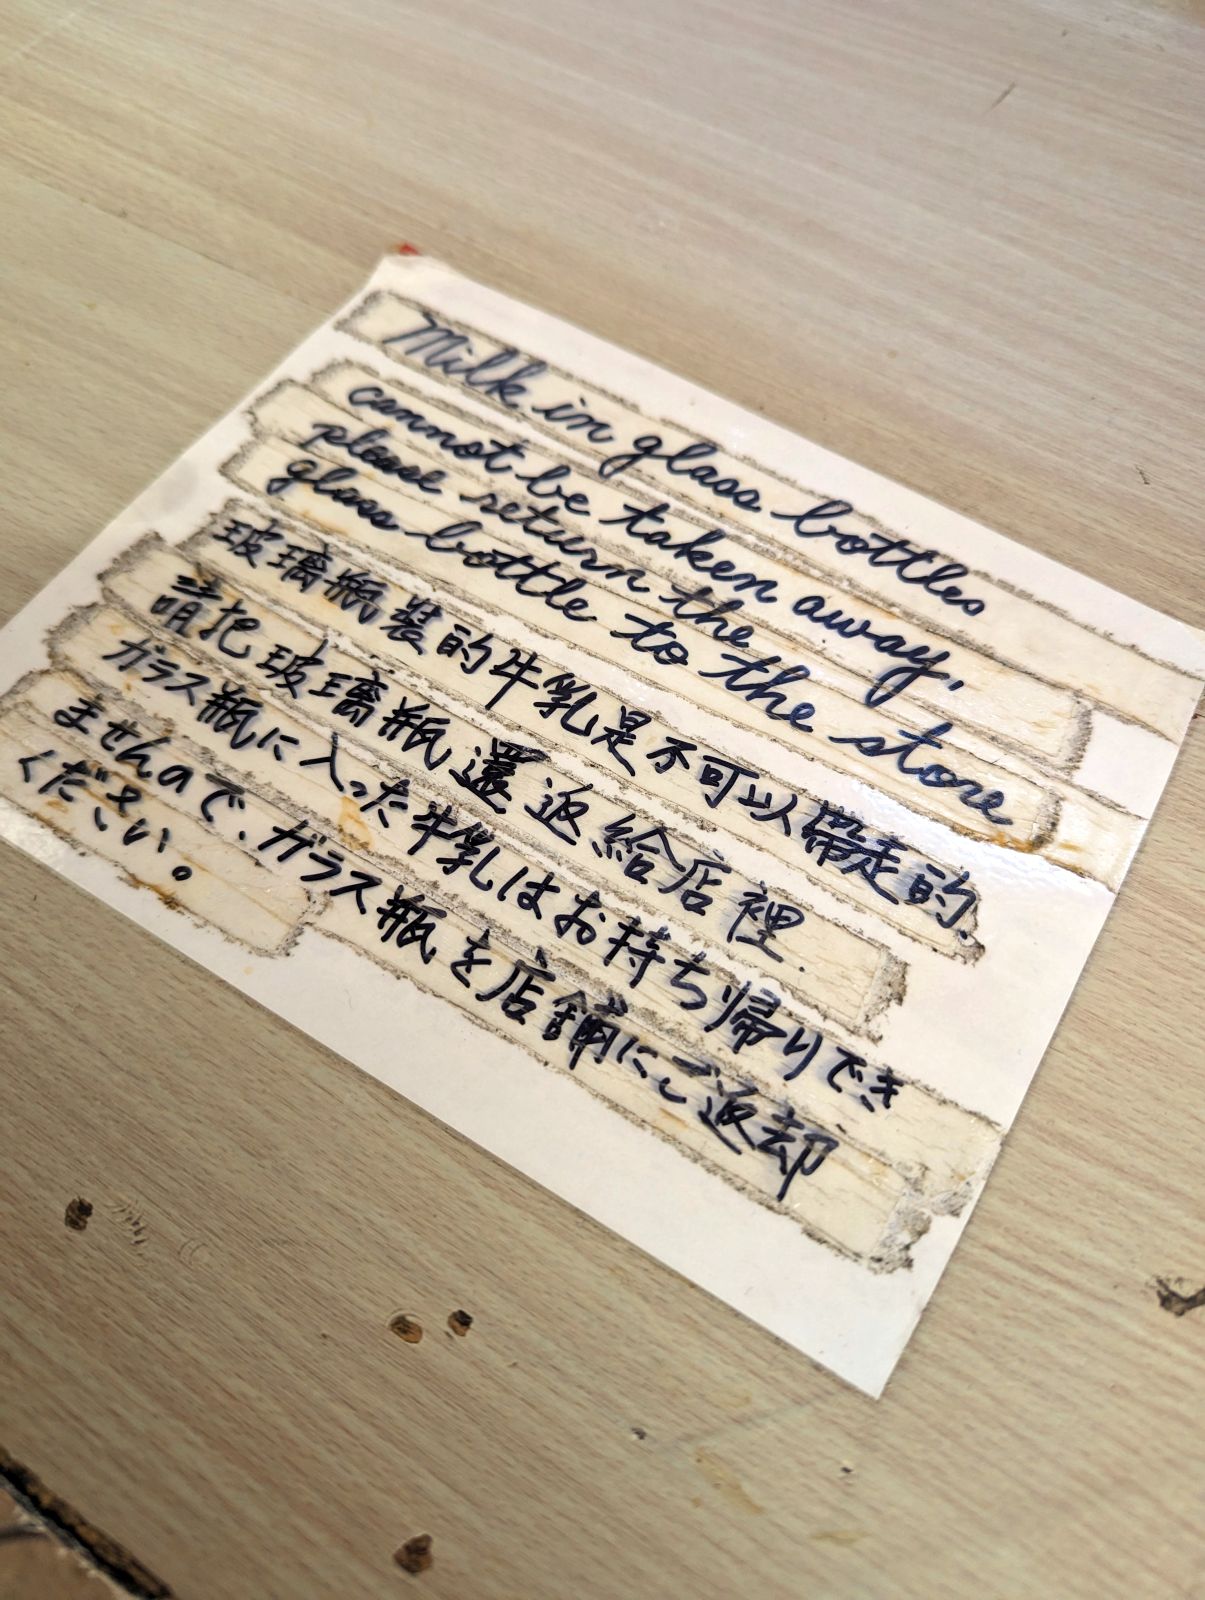 Milk in glass bottles
cannot be taken away,
please return the
glass bottle to the store
玻璃瓶裝的牛乳是不可以帶走的.
請把玻璃瓶還返給店裡.
ガラス瓶に入った牛乳はお持ち帰りでき
ませんので、ガラス瓶を店舗にご返却
ください。